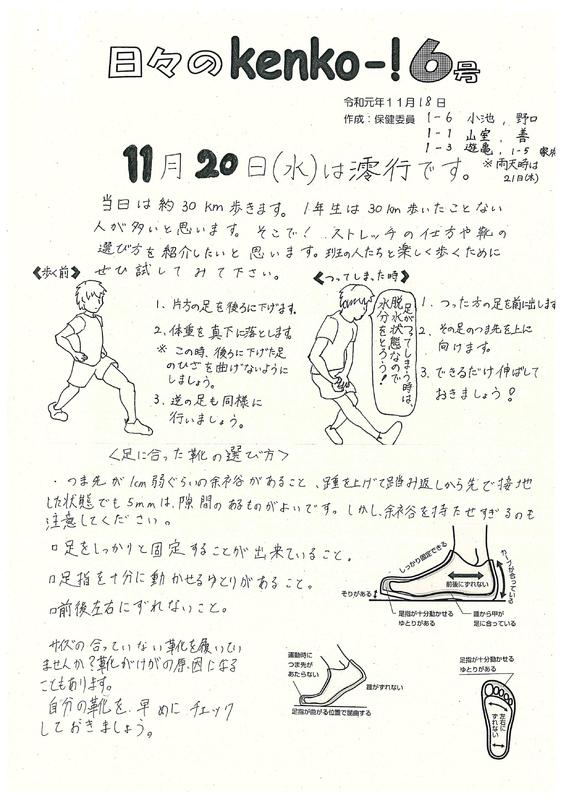 日々のkenko-!6号
令和元年11月18日
作成:保健委員 1-6 小池, 野口
1-1 山室, 善
1-3 遊亀, 1-5
11月20日(水)は澪行です。
※雨天時は
21日(木)
当日は約30km歩きます。1年生は30km歩いたことない
人が多いと思います。そこで!ストレッチの仕方や靴の
選び方を紹介したいと思います。班の人たちと楽しく歩くために
ぜひ試してみて下さい。
《歩く前》
1. 片方の足を後ろに下げます。
2. 体重を真下に落とします
※この時、後ろに下げた足
のひざを曲げないように
しましょう。
3. 逆の足も同様に
行いましょう。
《つってしまった時》
足がつってしまう時は、
脱水状態なので
水分をとろう!
1. つった方の足を前に出します
2. その足のつま先を上に
向けます。
3. できるだけ伸ばして
おきましょう?
<足に合った靴の選び方>
・つま先が1cm弱ぐらいの余裕があること、踵を上げて踏み返しから先で接地
した状態でも5mmは隙間のあるものがよいです。しかし、余裕を持たせすぎるのも
注意してください。
□足をしっかりと固定することが出来ていること。
□足指を十分に動かせるゆとりがあること。
□前後左右にずれないこと。
しっかり固定できる
カーブが合っている
前後にずれない
そりがある
足指が十分動かせる
ゆとりがある
踵から甲が
足に合っている
サイズの合っていない靴を履いてい
ませんか?靴がけがの原因になる
こともあります。
自分の靴を早めにチェック
しておきましょう。
運動時に
つま先が
あたらない
踵がずれない
足指が曲がる位置で屈曲する
足指が十分動かせる
ゆとりがある
左右に
ずれない